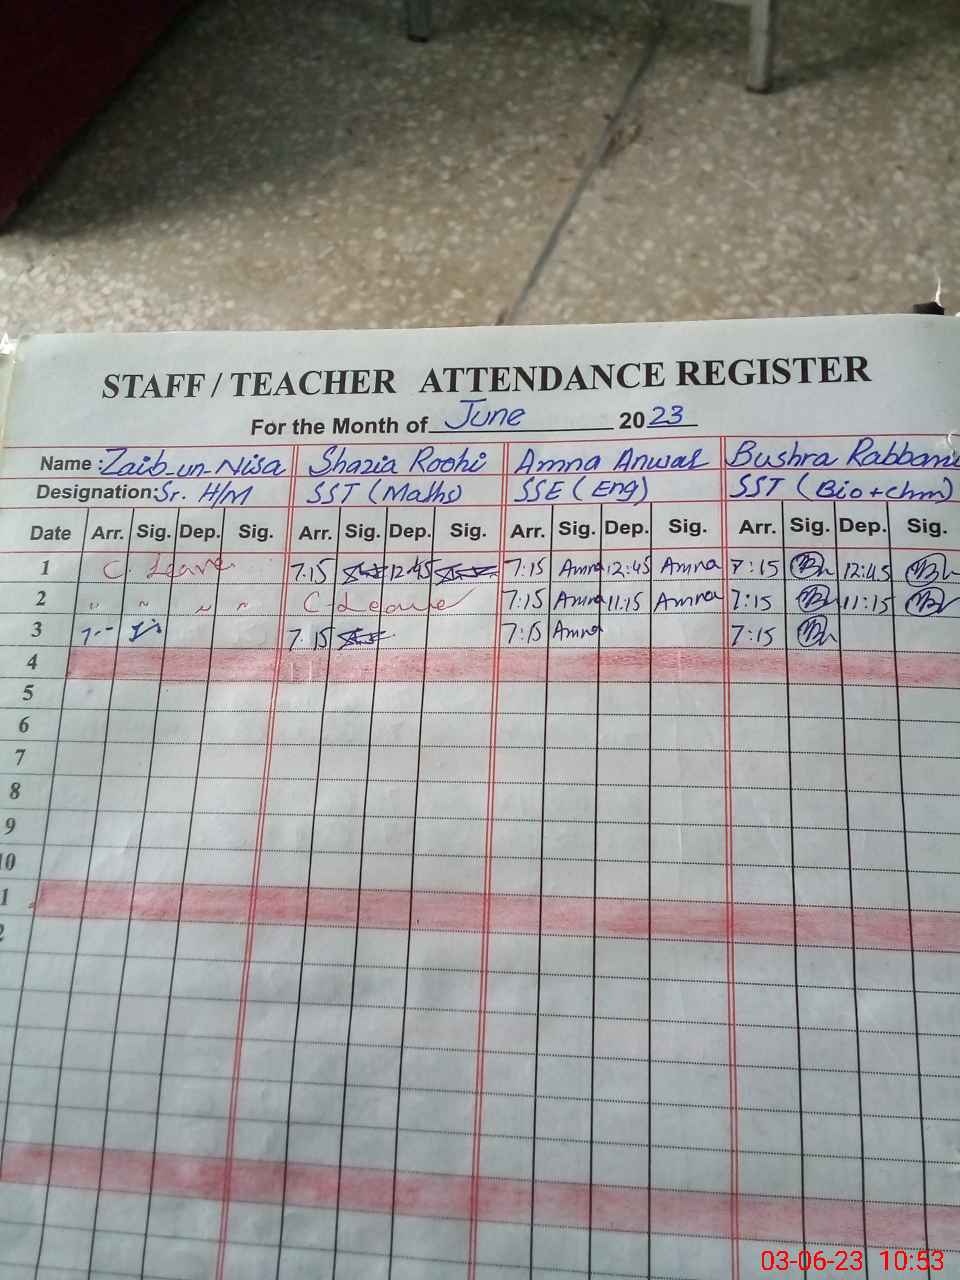 STAFF / TEACHER ATTENDANCE REGISTER
For the Month of June 2023
Name : Zaib-un-Nisa Shazia Roohi Amna Anwar Bushra Rabbani
Designation: Sr. H/M SST (Maths) SSE (Eng) SST (Bio+chm)
Date Arr. Sig. Dep. Sig. Arr. Sig. Dep. Sig. Arr. Sig. Dep. Sig. Arr. Sig. Dep. Sig.
1 C. Leave 7.15 12:45 7:15 Amna 12:45 Amna 7:15 12:45
2 " " " " C-Leave 7:15 Amna 11:15 Amna 7:15 11:15
3 7-- 7.15 7:15 Amna 7:15
4
5
6
7
8
9
10
1
2
03-06-23 10:53